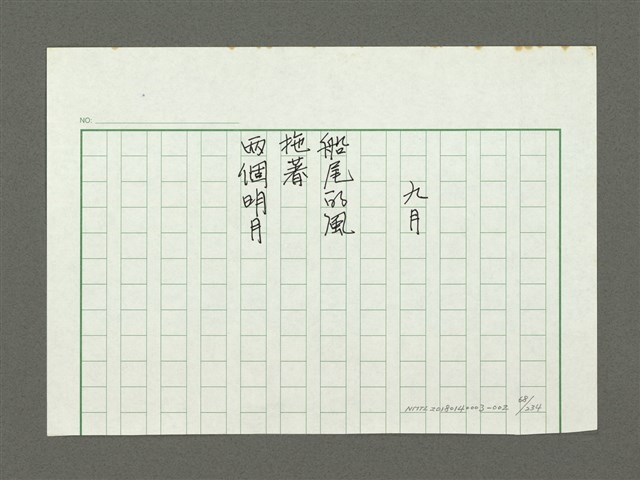 NO:
九月
船尾的風
拖著
兩個明月
NMTL20180140003-002
68/234